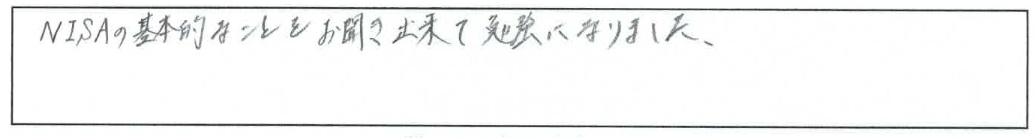 NISAの基本的なことをお聞き出来て勉強になりました、